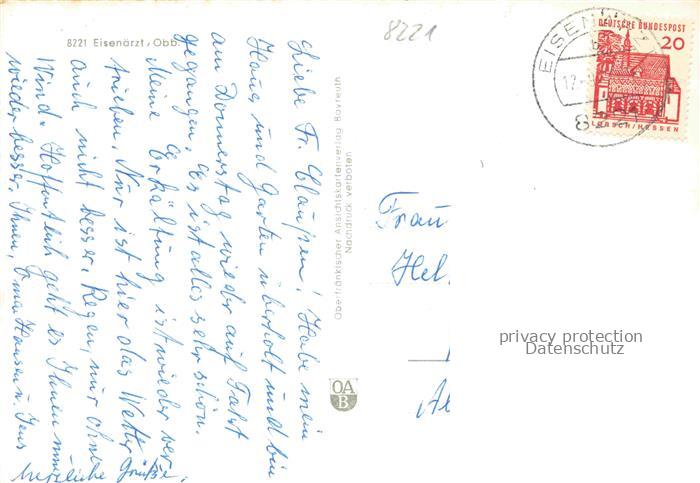 8221 Eisenärzt, Obb.
8221
Liebe Fr. Claußen! Habe mein
Haus und Garten überholt und bin
am Donnerstag wieder auf Fahrt
gegangen. Es ist alles sehr schön.
Meine Erkältung ist wieder ver-
trieben. Nur ist hier das Wetter
auch nicht besser. Regen, nur ohne
Wind. Hoffentlich geht es Ihnen nun
wieder besser. Ihnen, Oma Hansen u. Jens
herzliche Grüße,
Oberfränkischer Ansichtskartenverlag Bayreuth
Nachdruck verboten
OA
B
EISENÄRZT
8221
DEUTSCHE BUNDESPOST
20
LORSCH/HESSEN
Frau
Hel
privacy protection
Datenschutz